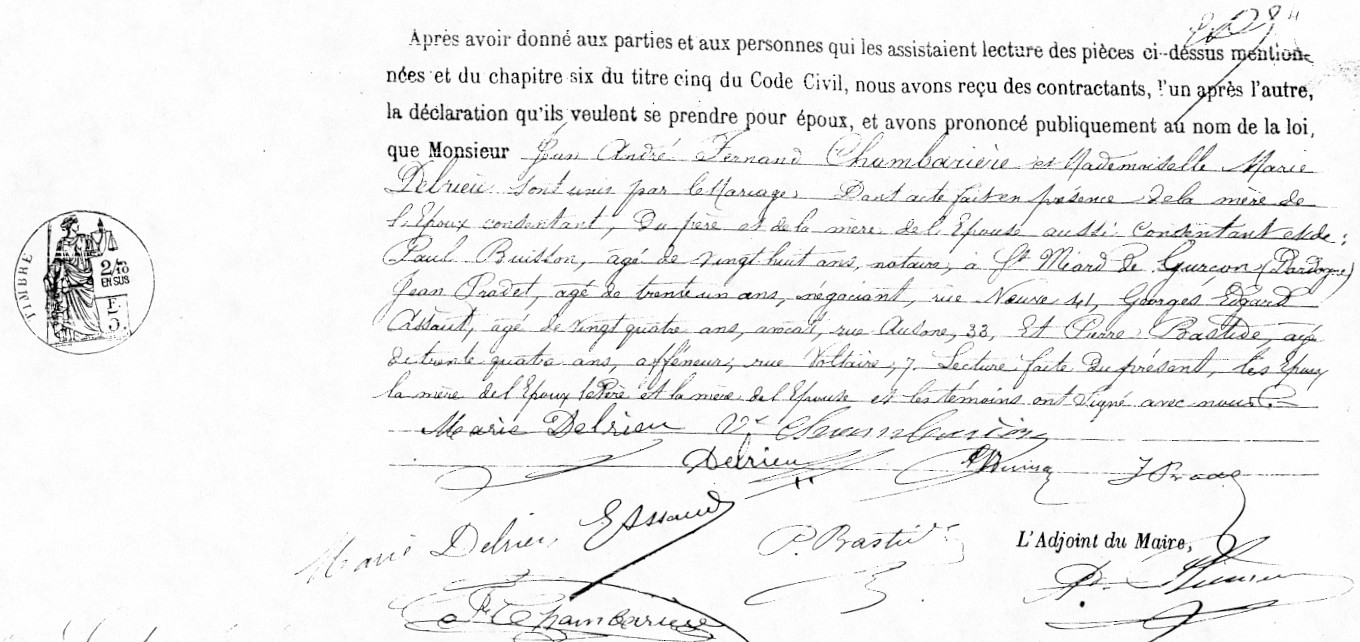 Après avoir donné aux parties et aux personnes qui les assistaient lecture des pièces ci-dessus mention-
nées et du chapitre six du titre cinq du Code Civil, nous avons reçu des contractants, l'un après l'autre,
la déclaration qu'ils veulent se prendre pour époux, et avons prononcé publiquement au nom de la loi,
que Monsieur Jean André Fernand Chambarière et Mademoiselle Marie
Delrieu sont unis par le Mariage. Dont acte fait en présence de la mère de
l'Epoux consentant, du père et de la mère de l'Epouse aussi consentant et de:
Paul Buisson, agé de vingt huit ans, notaire, à St Méard de Gurçon (Dordogne)
Jean Pradet, agé de trente un ans, négociant, rue Neuve 41, Georges Edgard
Assaut, agé de vingt quatre ans, avocat, rue Ausone, 33, Et Pierre Bastide, agé
de trente quatre ans, affréneur, rue Voltaire, 7. Lecture faite du présent, les Epoux
la mère de l'Epoux le Père et la mère de l'Epouse et les témoins ont signé avec nous.
Marie Delrieu Vve Chambarière
Delrieu J Prade
TIMBRE
2/10
EN SUS
Marie Delrieu E Assaud P. Bastide
L'Adjoint du Maire,
F. Chambarière